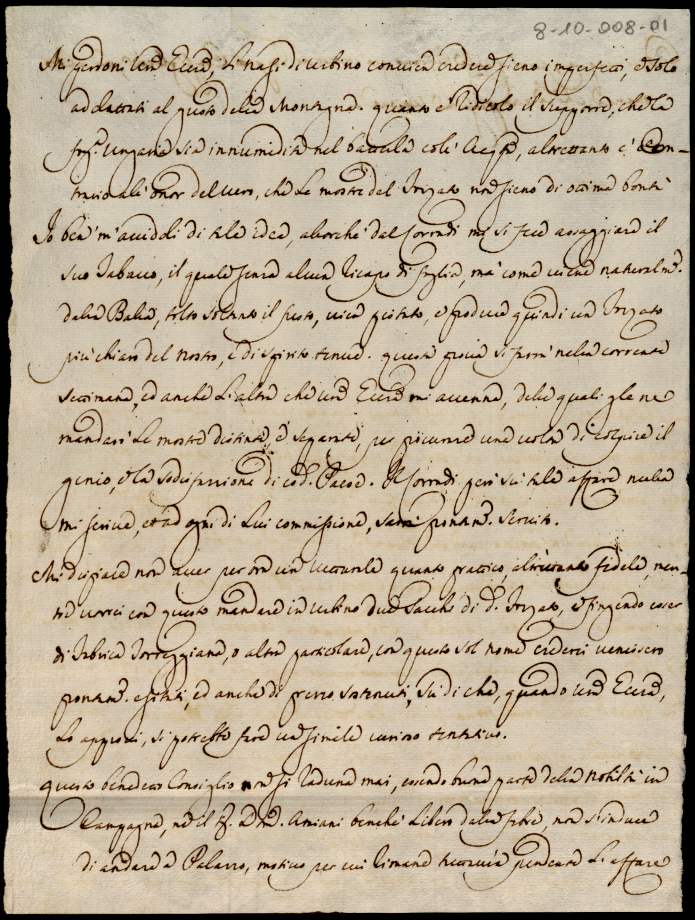 8-10-008-01
Mi perdoni Vrã Eccza, L. nasi di Urbino conviene credere sieno imperfetti, e solo
adattati al gusto della Montagna. quanto è ridicolo il supporre, che la
fog. Ungara sia innumidita nel baccile coll' Acqua, altrettanto è con-
tro il vero, che le mostre del Trizato non sieno di ottima bontà
Io ben m'avviddi di tale idea, allorché dal Corradi mi si fece assaggiare il
suo Tabacco, il quale senza alcun ricapo di foglia, ma come viene naturalme.
dalla Balla, tolto soltanto il fusto, vien pistato, e produce quindi un Trizato
più chiaro del nostro, e di spirito tenue. questa prova si farà nella corrente
settimana, ed anche l'altre che Vrã Eccza mi accenna, delle quali gle ne
mandarò le mostre distinte, e separate, per procurare una volta di colpire il
genio, e la sodisfazzione di cod. Paesi. Il Corradi però su tale affare nulla
mi scrive, et ad ogni di Lui commissione, sarà prontam. servito.
Mi dispiace non aver per ora un vetturale quanto prattico, altrettanto fedele, men-
tre vorrei con questo mandare in Urbino due Sacchi di d. Trizato, e fingendo esser
di fabrica Torreggiana, o altra particolare, con questo sol nome crederei venissero
prontam. esitati, ed anche di prezzo sostenuti, Su di che, quando Vrã Eccza,
Lo approvi, si potrebbe fare un simile curioso tentativo.
questo benedetto Consiglio non si raduna mai, essendo buona parte della Nobiltà in
Campagna, né il S. Amiani benché Libero dalla febre, non s'induce
di andare a Palazzo, motivo per cui rimane tuttavia pendente L'affare